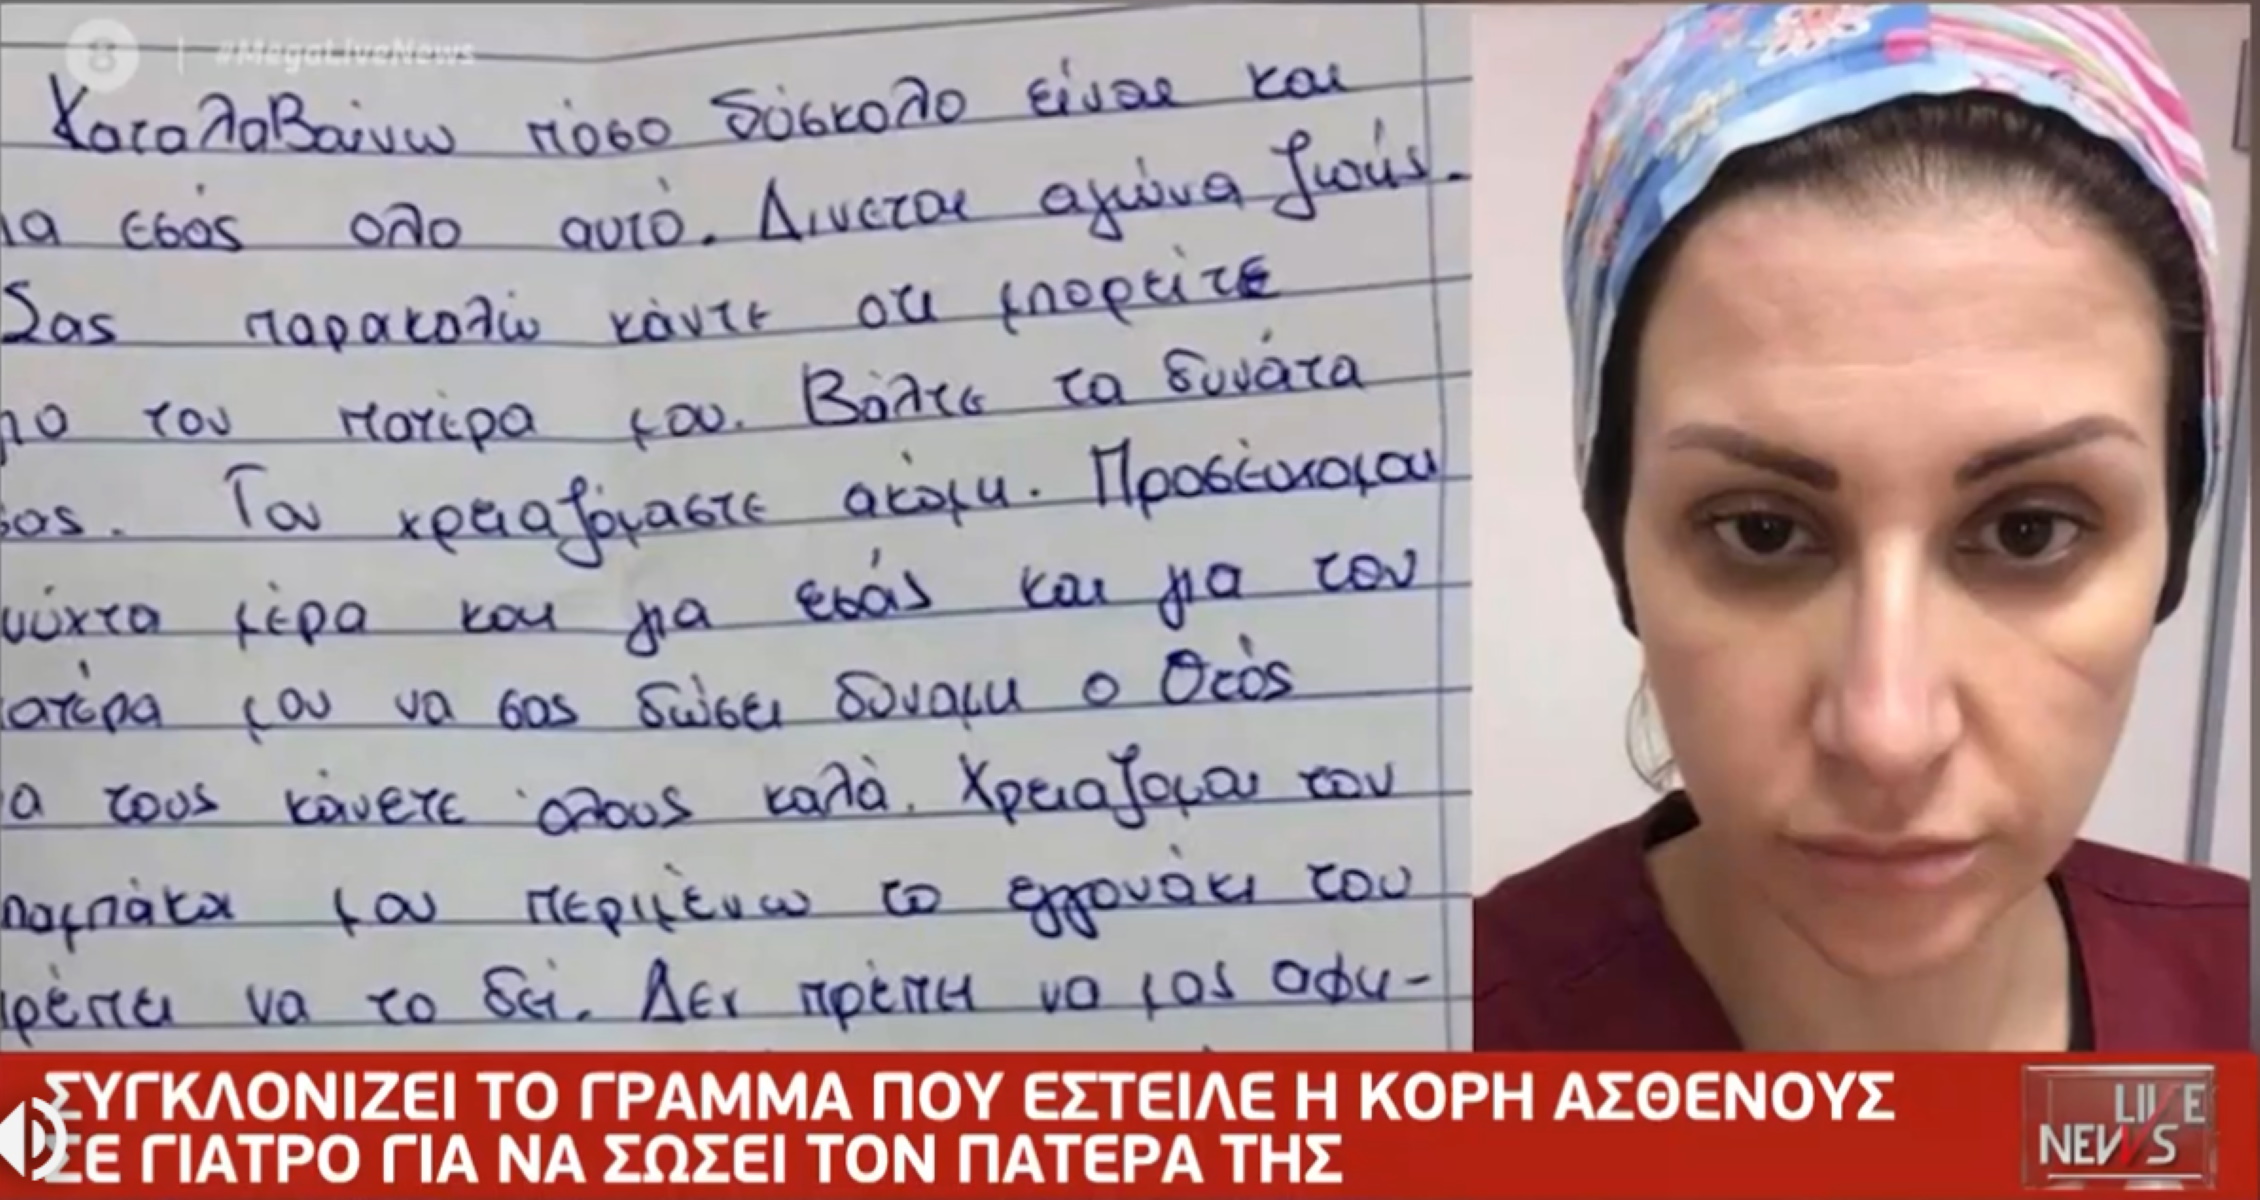 8 | #MegaLiveNews
Καταλαβαίνω πόσο δύσκολο είναι και
ια εσάς ολο αυτό. Δινεται αγώνα ζωής.
Σας παρακαλώ κάντε οτι μπορείτε
για τον πατέρα μου. Βάλτε τα δυνάτα
σας. Τον χρειαζόμαστε ακόμη. Προσέυχομαι
νύχτα μέρα και για εσάς και για τον
ατέρα μου να σας δώσει δυναμη ο Θεός
α τους κάνετε όλους καλά. Χρειαζομαι τον
παμπάκα μου περιμένω το εγγονάκι του
ρέπει να το δεί. Δεν πρέπει να μας αφη-
ΣΥΓΚΛΟΝΙΖΕΙ ΤΟ ΓΡΑΜΜΑ ΠΟΥ ΕΣΤΕΙΛΕ Η ΚΟΡΗ ΑΣΘΕΝΟΥΣ
ΣΕ ΓΙΑΤΡΟ ΓΙΑ ΝΑ ΣΩΣΕΙ ΤΟΝ ΠΑΤΕΡΑ ΤΗΣ
LIVE
NEWS